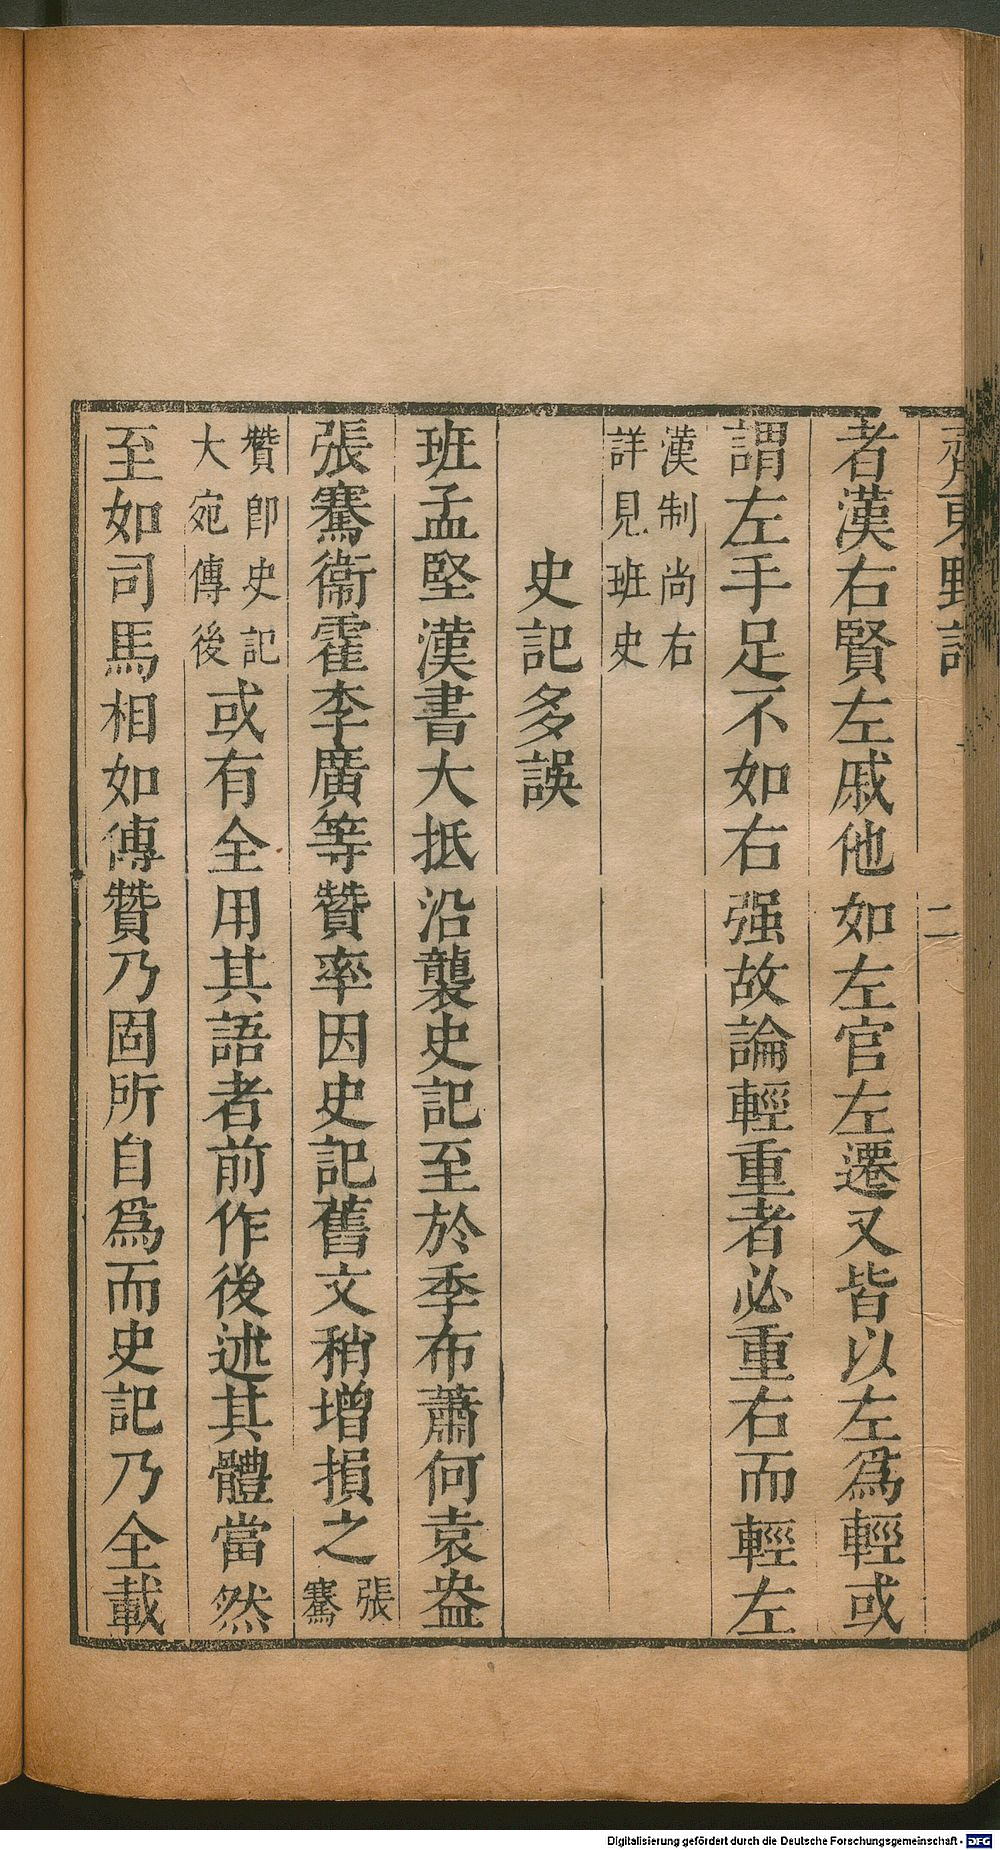 齊東野語 二
者漢右賢左戚他如左官左遷又皆以左爲輕或
謂左手足不如右强故論輕重者必重右而輕左
漢制尚右
詳見班史
史記多誤
班孟堅漢書大抵沿襲史記至於季布蕭何袁盎
張騫衞霍李廣等贊率因史記舊文稍增損之張騫
贊卽史記大宛傳後或有全用其語者前作後述其體當然
至如司馬相如傳贊乃固所自爲而史記乃全載
Digitalisierung gefördert durch die Deutsche Forschungsgemeinschaft - DFG